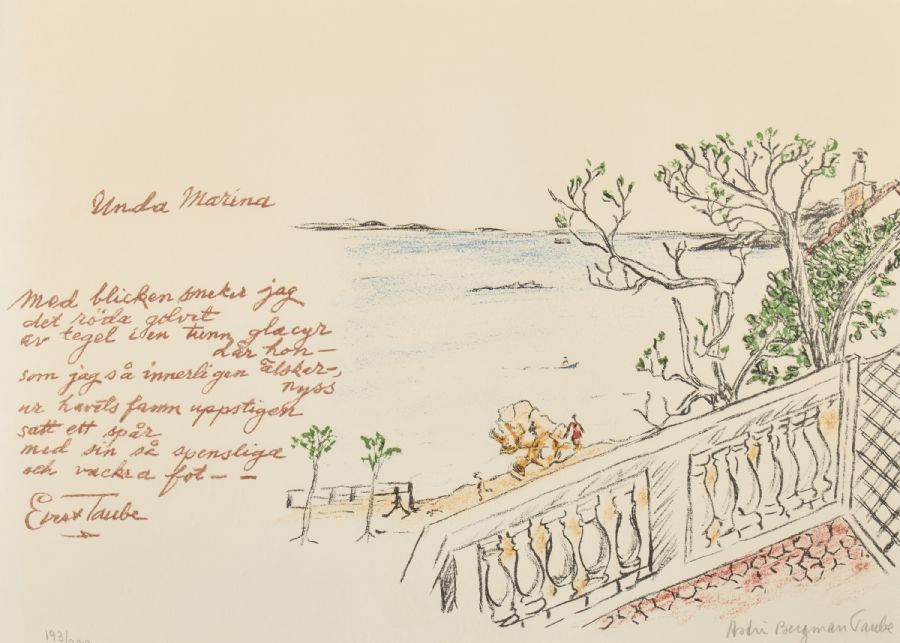 Unda Marina
Med blicken smeker jag
det röda golvet
av tegel i en tunn glacyr
där hon—
som jag så innerligen älsker—,
nyss
ur havets famn uppstigen
satt ett spår
med sin så spensliga
och vackra fot — —
Evert Taube
193/
Astri Bergman Taube